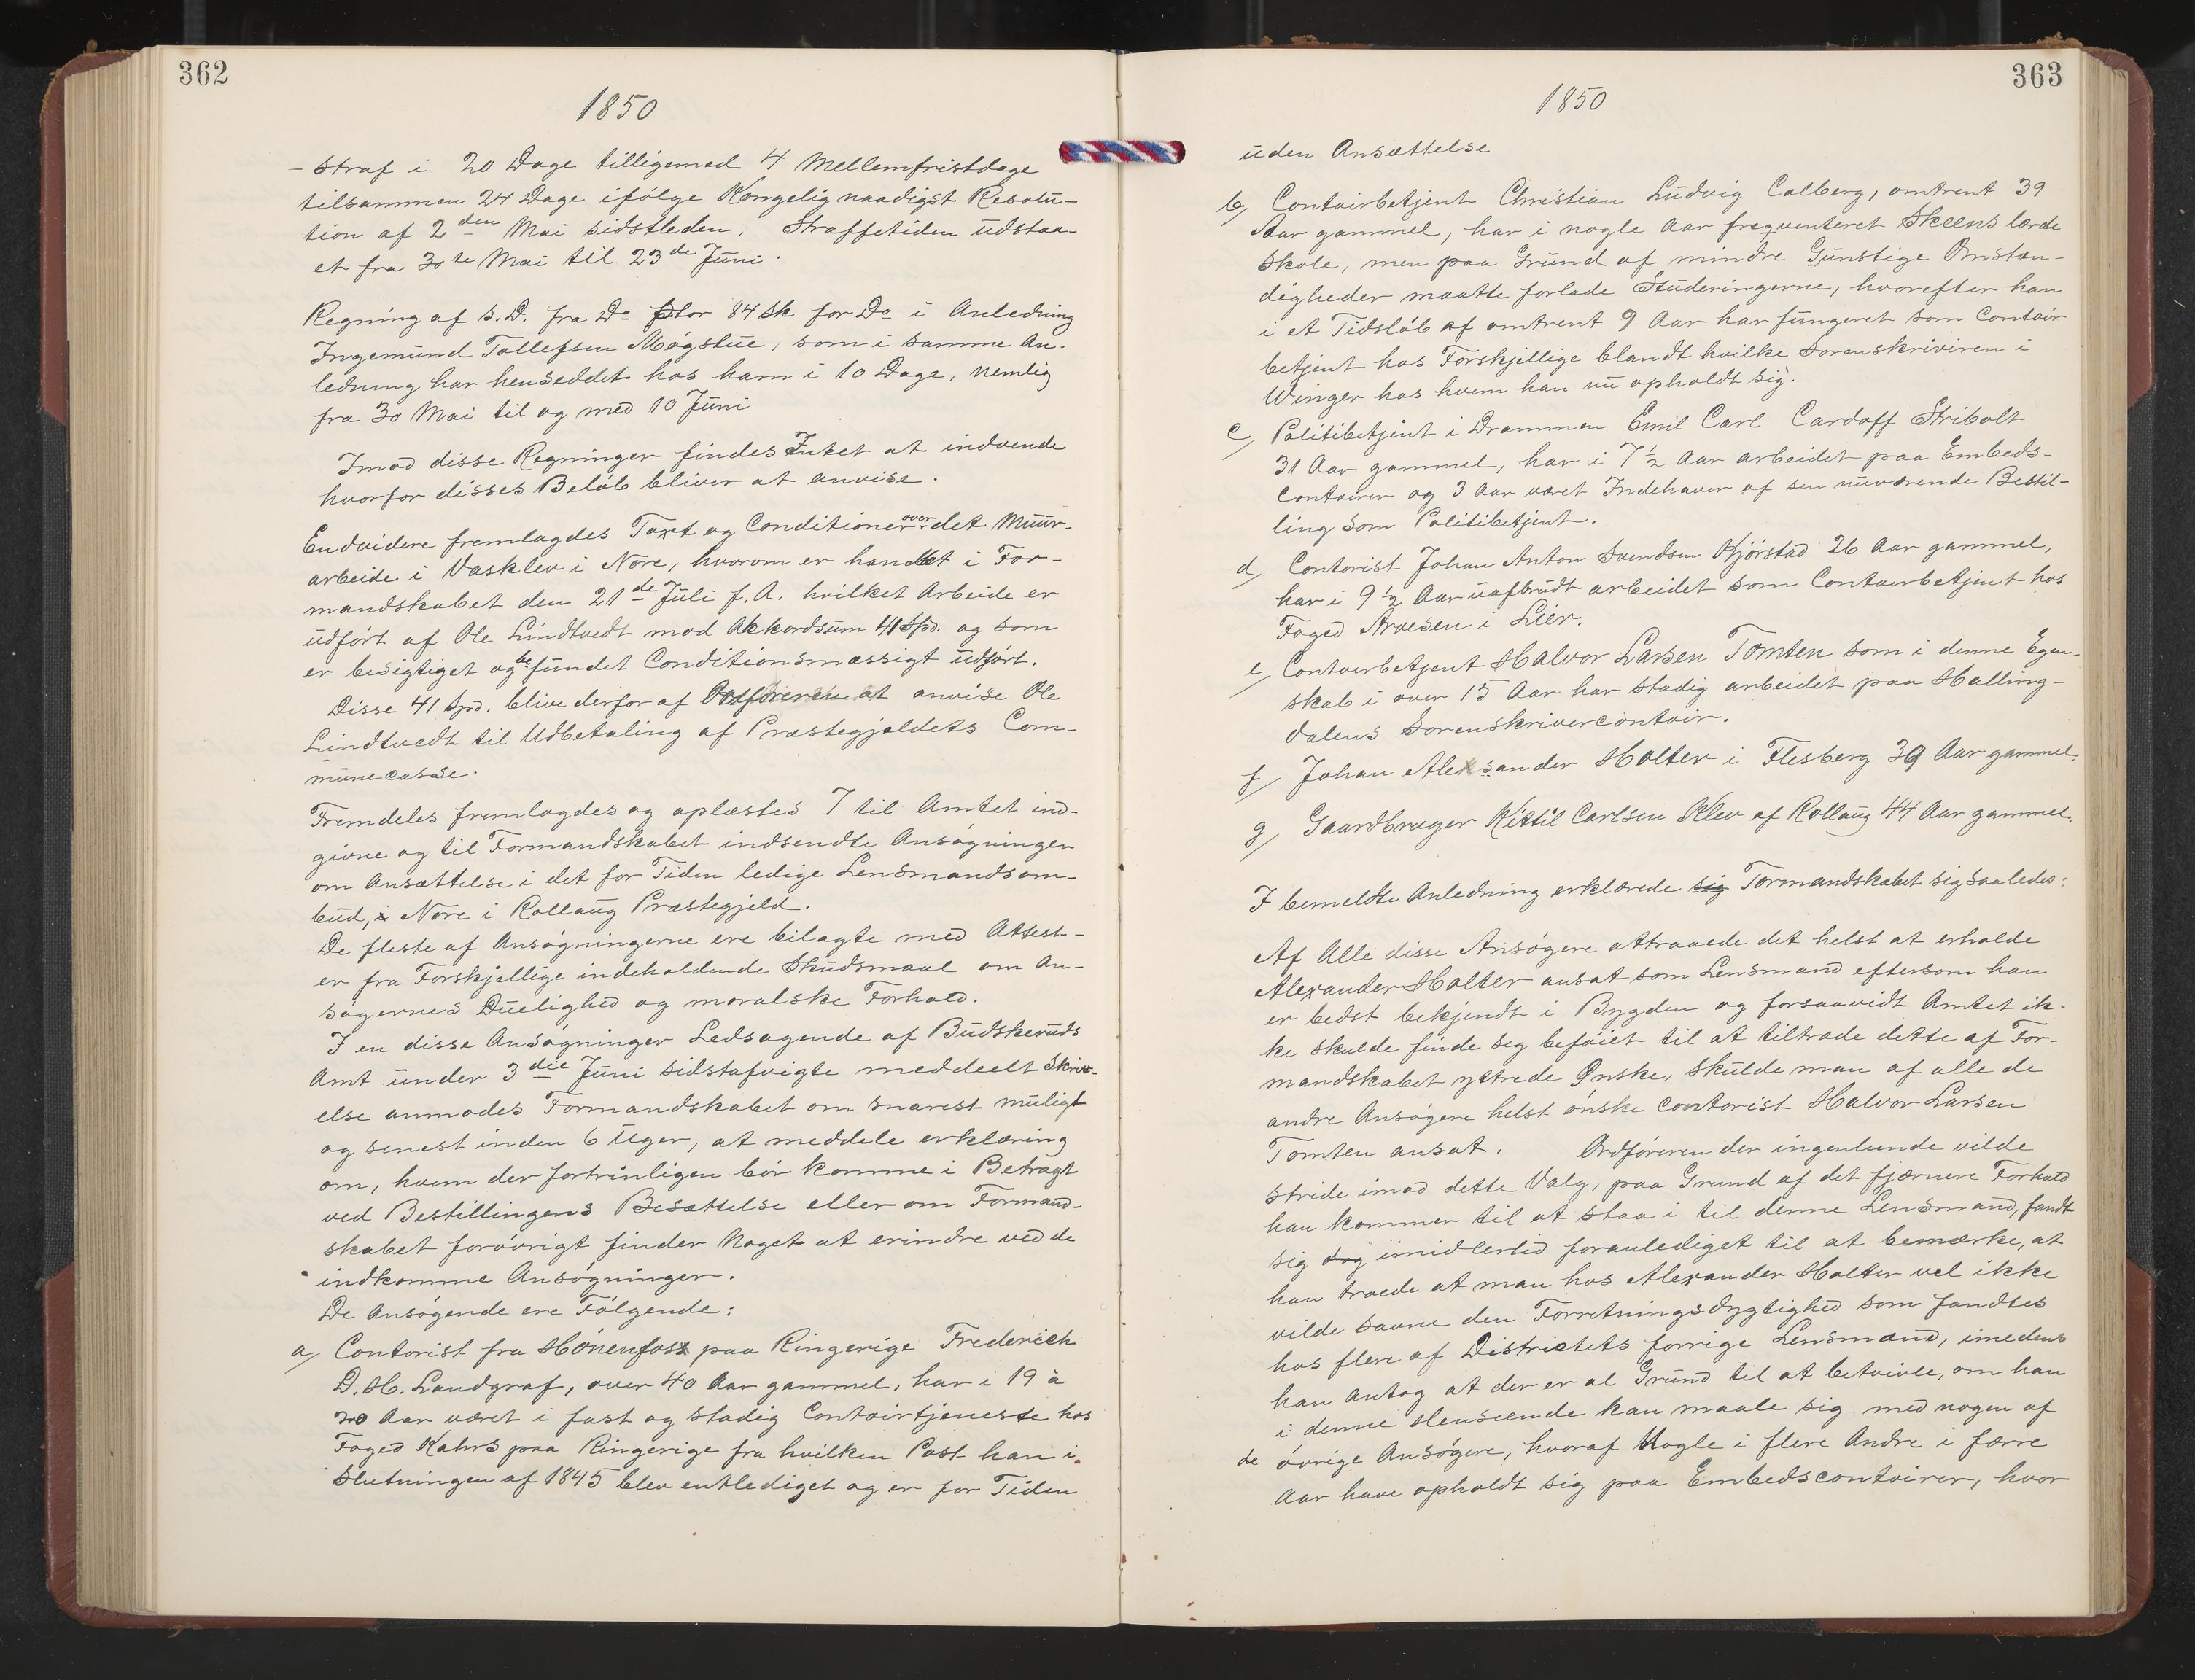 362
1850
- Straf i 20 Dage tilligemed 4 Mellemfristdage
tilsammen 24 Dage ifølge Kongelig naadigst Resolu-
tion af 2den Mai sidstleden. Straffetiden udstaa-
et fra 30te Mai til 23de Juni.
Regning af s.D. fra Do stor 84 sk for Do i Anledning
Ingemund Tollefsen Møgstue, som i samme An-
ledning har henseddet hos ham i 10 Dage, nemlig
fra 30 Mai til og med 10 Juni
Imod disse Regninger findes Intet at indvende
hvorfor disses Beløb bliver at anvise.
Endvidere fremlagdes Taxt og Conditioner over det Muur-
arbeide i Vasklev i Nore, hvorom er handlet i For-
mandskabet den 21de Juli f.A. hvilket Arbeide er
udført af Ole Lindtvedt mod Akkordsum 41 Spd. og som
er besigtiget og befundet Conditionsmæssigt udført.
Disse 41 Spd. blive derfor af Ordføreren at anvise Ole
Lindtvedt til Udbetaling af Præstegjeldets Com-
munecasse.
Fremdeles fremlagdes og oplæstes 7 til Amtet ind-
givne og til Formandskabet indsendte Ansøgninger
om Ansættelse i det for Tiden ledige Lensmandsom-
bud, i Nore i Rollaug Præstegjeld.
De fleste af Ansøgningerne ere bilagte med Attest-
er fra Forskjellige indeholdende Skudsmaal om An-
søgernes Duelighed og moralske Forhold.
I en disse Ansøgninger Ledsagende af Budskeruds
Amt under 3die Juni sidstafvigte meddeelt Skriv-
else anmodes Formandskabet om snarest muligt
og senest inden 6 Uger, at meddele erklæring
om, hvem der fortrinligen bør komme i Betragt
ved Bestillingens Besættelse eller om Formand-
skabet forøvrigt finder Noget at erindre ved de
indkomme Ansøgninger.
De Ansøgende ere Følgende:
a, Contorist fra Hønenfoss paa Ringerige Frederich
D. H. Landgraf, over 40 Aar gammel, har i 19 à
20 Aar været i fast og stadig Contoirtjeneste hos
Foged Kahrs paa Ringerige fra hvilken Post han i
Slutningen af 1845 blev entlediget og er for Tiden
363
1850
uden Ansættelse
b, Contoirbetjent Christian Ludvig Calberg, omtrent 39
Aar gammel, har i nogle Aar freqventeret Skeens lærde
Skole, men paa Grund af mindre Gunstige Omstæn-
digheder maatte forlade Studeringerne, hvorefter han
i et Tidsløb af omtrent 9 Aar har fungeret som Contoir
betjent hos Forskjellige blandt hvilke Sorenskriviren i
Winger hos hvem han nu opholdt sig.
c, Politibetjent i Drammen Emil Carl Cardoff Stribolt
31 Aar gammel, har i 7 1/2 Aar arbeidet paa Embeds-
contoirer og 3 Aar været Indehaver af sin nuværende Bestil-
ling som Politibetjent.
d, Contorist Johan Anton Svendsen Kjørstad 26 Aar gammel,
har i 9 1/2 Aar uafbrudt arbeidet som Contoirbetjent hos
Foged Arvesen i Lier.
e, Contoirbetjent Halvor Larsen Tomten som i denne Egen-
skab i over 15 Aar har stadig arbeidet paa Halling-
dalens Sorenskrivercontoir.
f, Johan Alexsander Holter i Flesberg 39 Aar gammel.
g, Gaardbruger Kittil Carlsen Klev af Rollaug 44 Aar gammel.
I bemeldte Anledning erklærede sig Formandskabet sig saaledes:
Af Alle disse Ansøgere attraaede det helst at erholde
Alexander Holter ansat som Lensmand eftersom han
er bedst bekjendt i Bygden og forsaavidt Amtet ik-
ke skulde finde sig beføiet til at tiltræde dette af For-
mandskabet yttrede Ønske, skulde man af alle de
andre Ansøgere helst ønske Contorist Halvor Larsen
Tomten ansat. Ordføreren der ingenlunde vilde
stride imod dette Valg, paa Grund af det fjærnere Forhold
han kommer til at staa i til denne Lensmand, fandt
sig dog imidlertid foranlediget til at bemærke, at
han troede at man hos Alexander Holter vel ikke
vilde savne den Forretningsdygtighed som fandtes
hos flere af Districtets forrige Lensmænd, imedens
han Antog at der er al Grund til at betvivle, om han
i denne Henseende kan maale sig med nogen af
de øvrige Ansøgere, hvoraf Nogle i flere Andre i færre
Aar have opholdt sig paa Embedscontoirer, hvor